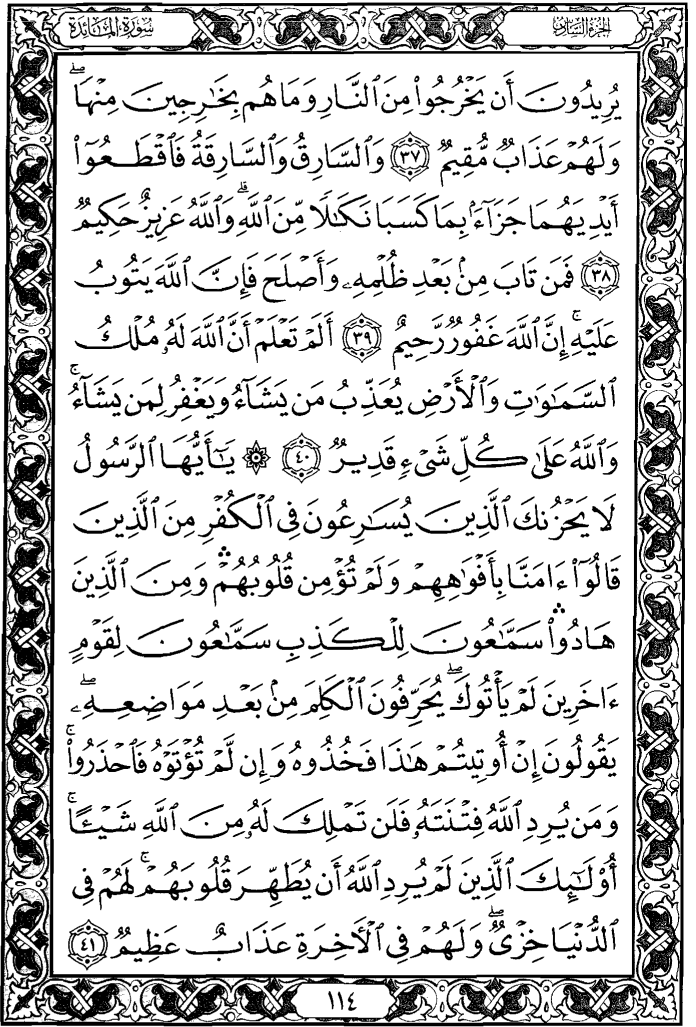 الجزء السادس
سورة المائدة
يُرِيدُونَ أَن يَخْرُجُوا۟ مِنَ ٱلنَّارِ وَمَا هُم بِخَٰرِجِينَ مِنْهَا ۖ
وَلَهُمْ عَذَابٌ مُّقِيمٌ ٣٧ وَٱلسَّارِقُ وَٱلسَّارِقَةُ فَٱقْطَعُوٓا۟
أَيْدِيَهُمَا جَزَآءًۢ بِمَا كَسَبَا نَكَٰلًا مِّنَ ٱللَّهِ ۗ وَٱللَّهُ عَزِيزٌ حَكِيمٌ
٣٨ فَمَن تَابَ مِنۢ بَعْدِ ظُلْمِهِۦ وَأَصْلَحَ فَإِنَّ ٱللَّهَ يَتُوبُ
عَلَيْهِ ۚ إِنَّ ٱللَّهَ غَفُورٌ رَّحِيمٌ ٣٩ أَلَمْ تَعْلَمْ أَنَّ ٱللَّهَ لَهُۥ مُلْكُ
ٱلسَّمَٰوَٰتِ وَٱلْأَرْضِ يُعَذِّبُ مَن يَشَآءُ وَيَغْفِرُ لِمَن يَشَآءُ ۗ
وَٱللَّهُ عَلَىٰ كُلِّ شَىْءٍ قَدِيرٌ ٤٠ ۞ يَٰٓأَيُّهَا ٱلرَّسُولُ
لَا يَحْزُنكَ ٱلَّذِينَ يُسَٰرِعُونَ فِى ٱلْكُفْرِ مِنَ ٱلَّذِينَ
قَالُوٓا۟ ءَامَنَّا بِأَفْوَٰهِهِمْ وَلَمْ تُؤْمِن قُلُوبُهُمْ ۛ وَمِنَ ٱلَّذِينَ
هَادُوا۟ ۛ سَمَّٰعُونَ لِلْكَذِبِ سَمَّٰعُونَ لِقَوْمٍ
ءَاخَرِينَ لَمْ يَأْتُوكَ ۖ يُحَرِّفُونَ ٱلْكَلِمَ مِنۢ بَعْدِ مَوَاضِعِهِۦ ۖ
يَقُولُونَ إِنْ أُوتِيتُمْ هَٰذَا فَخُذُوهُ وَإِن لَّمْ تُؤْتَوْهُ فَٱحْذَرُوا۟ ۚ
وَمَن يُرِدِ ٱللَّهُ فِتْنَتَهُۥ فَلَن تَمْلِكَ لَهُۥ مِنَ ٱللَّهِ شَيْـًٔا ۚ
أُو۟لَٰٓئِكَ ٱلَّذِينَ لَمْ يُرِدِ ٱللَّهُ أَن يُطَهِّرَ قُلُوبَهُمْ ۚ لَهُمْ فِى
ٱلدُّنْيَا خِزْىٌ ۖ وَلَهُمْ فِى ٱلْءَاخِرَةِ عَذَابٌ عَظِيمٌ ٤١
١١٤